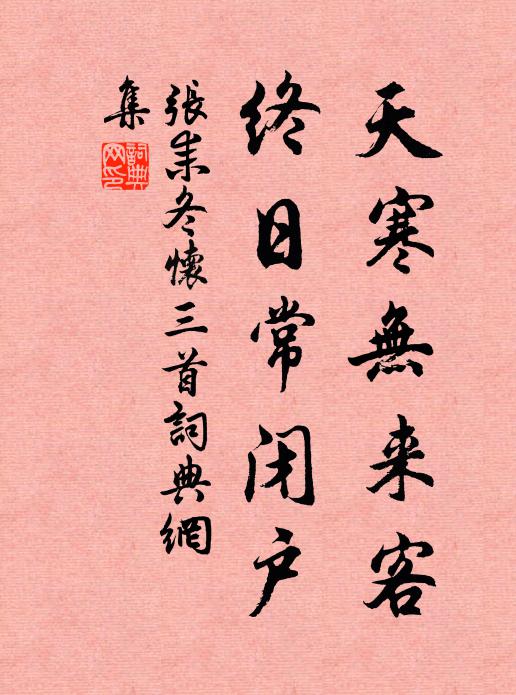 天寒無来客
終日常闭户
張耒冬懷三首詞典網
集
詞典網印